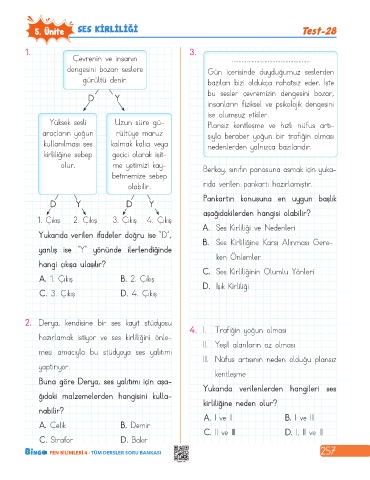 5. Ünite
SES KİRLİLİĞİ
Test-28
1.
Çevrenin ve insanın
dengesini bozan seslere
gürültü denir.
D
Y
Yüksek sesli
araçların yoğun
kullanılması ses
kirliliğine sebep
olur.
Uzun süre gü-
rültüye maruz
kalmak kalıcı veya
geçici olarak işit-
me yetimizi kay-
betmemize sebep
olabilir.
D
Y
D
Y
1. Çıkış
2. Çıkış
3. Çıkış
4. Çıkış
Yukarıda verilen ifadeler doğru ise “D”,
yanlış ise “Y” yönünde ilerlendiğinde
hangi çıkışa ulaşılır?
A. 1. Çıkış
B. 2. Çıkış
C. 3. Çıkış
D. 4. Çıkış
2. Derya, kendisine bir ses kayıt stüdyosu
hazırlamak istiyor ve ses kirliliğini önle-
mesi amacıyla bu stüdyoya ses yalıtımı
yaptırıyor.
Buna göre Derya, ses yalıtımı için aşa-
ğıdaki malzemelerden hangisini kulla-
nabilir?
A. Çelik
B. Demir
C. Strafor
D. Bakır
3.
Gün içerisinde duyduğumuz seslerden
bazıları bizi oldukça rahatsız eder. İşte
bu sesler çevremizin dengesini bozar,
insanların fiziksel ve psikolojik dengesini
ise olumsuz etkiler.
Plansız kentleşme ve hızlı nüfus artı-
şıyla beraber yoğun bir trafiğin olması
nedenlerden yalnızca bazılarıdır.
Berkay, sınıfın panosuna asmak için yuka-
rıda verilen pankartı hazırlamıştır.
Pankartın konusuna en uygun başlık
aşağıdakilerden hangisi olabilir?
A. Ses Kirliliği ve Nedenleri
B. Ses Kirliliğine Karşı Alınması Gere-
ken Önlemler
C. Ses Kirliliğinin Olumlu Yönleri
D. Işık Kirliliği
4. I. Trafiğin yoğun olması
II. Yeşil alanların az olması
III. Nüfus artışının neden olduğu plansız
kentleşme
Yukarıda verilenlerden hangileri ses
kirliliğine neden olur?
A. I ve II
B. I ve III
C. II ve III
D. I, II ve III
BİNGO FEN BİLİMLERİ 4 - TÜM DERSLER SORU BANKASI
257